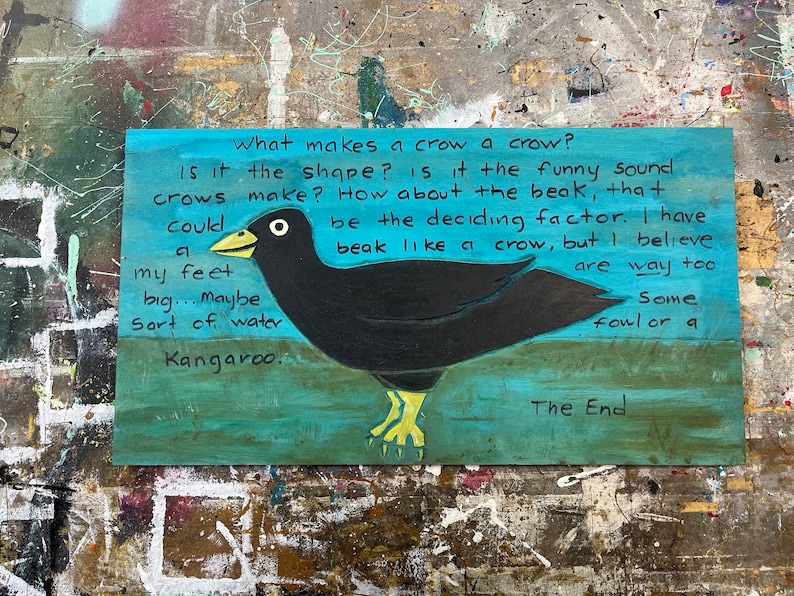 What makes a crow a crow?
Is it the shape? Is it the funny sound
crows make? How about the beak, that
could be the deciding factor. I have
a beak like a crow, but I believe
my feet are way too
big... Maybe some
sort of water fowl or a
Kangaroo.
The End